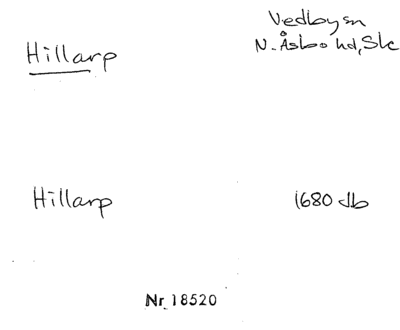 Hillarp
Vedby sn
N. Åsbo hd, Sk
Hillarp
1680 Jb
Nr 18520